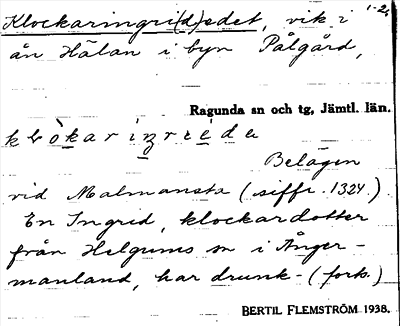 Klockaringri(d)edet, vik i 1-2.
ån Hälan i byn Pålgård,
Ragunda sn och tg, Jämtl. län.
klòkariŋreedə
Belägen
vid Malmansta (siffr. 1324.)
En Ingrid, klockardotter
från Helgums sn i Ånger-
manland, har drunk- (forts.)
BERTIL FLEMSTRÖM 1938.